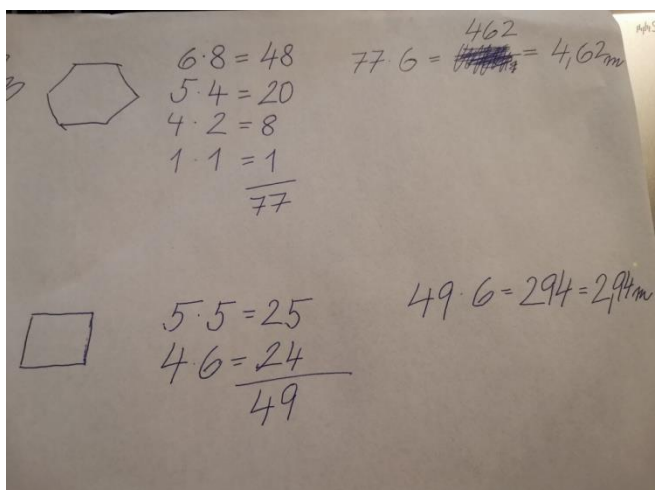 6·8=48
5·4=20
4·2=8
1·1=1
77
462
77·6= = 4,62m
5·5=25
4·6=24
49
49·6=294=2,94m